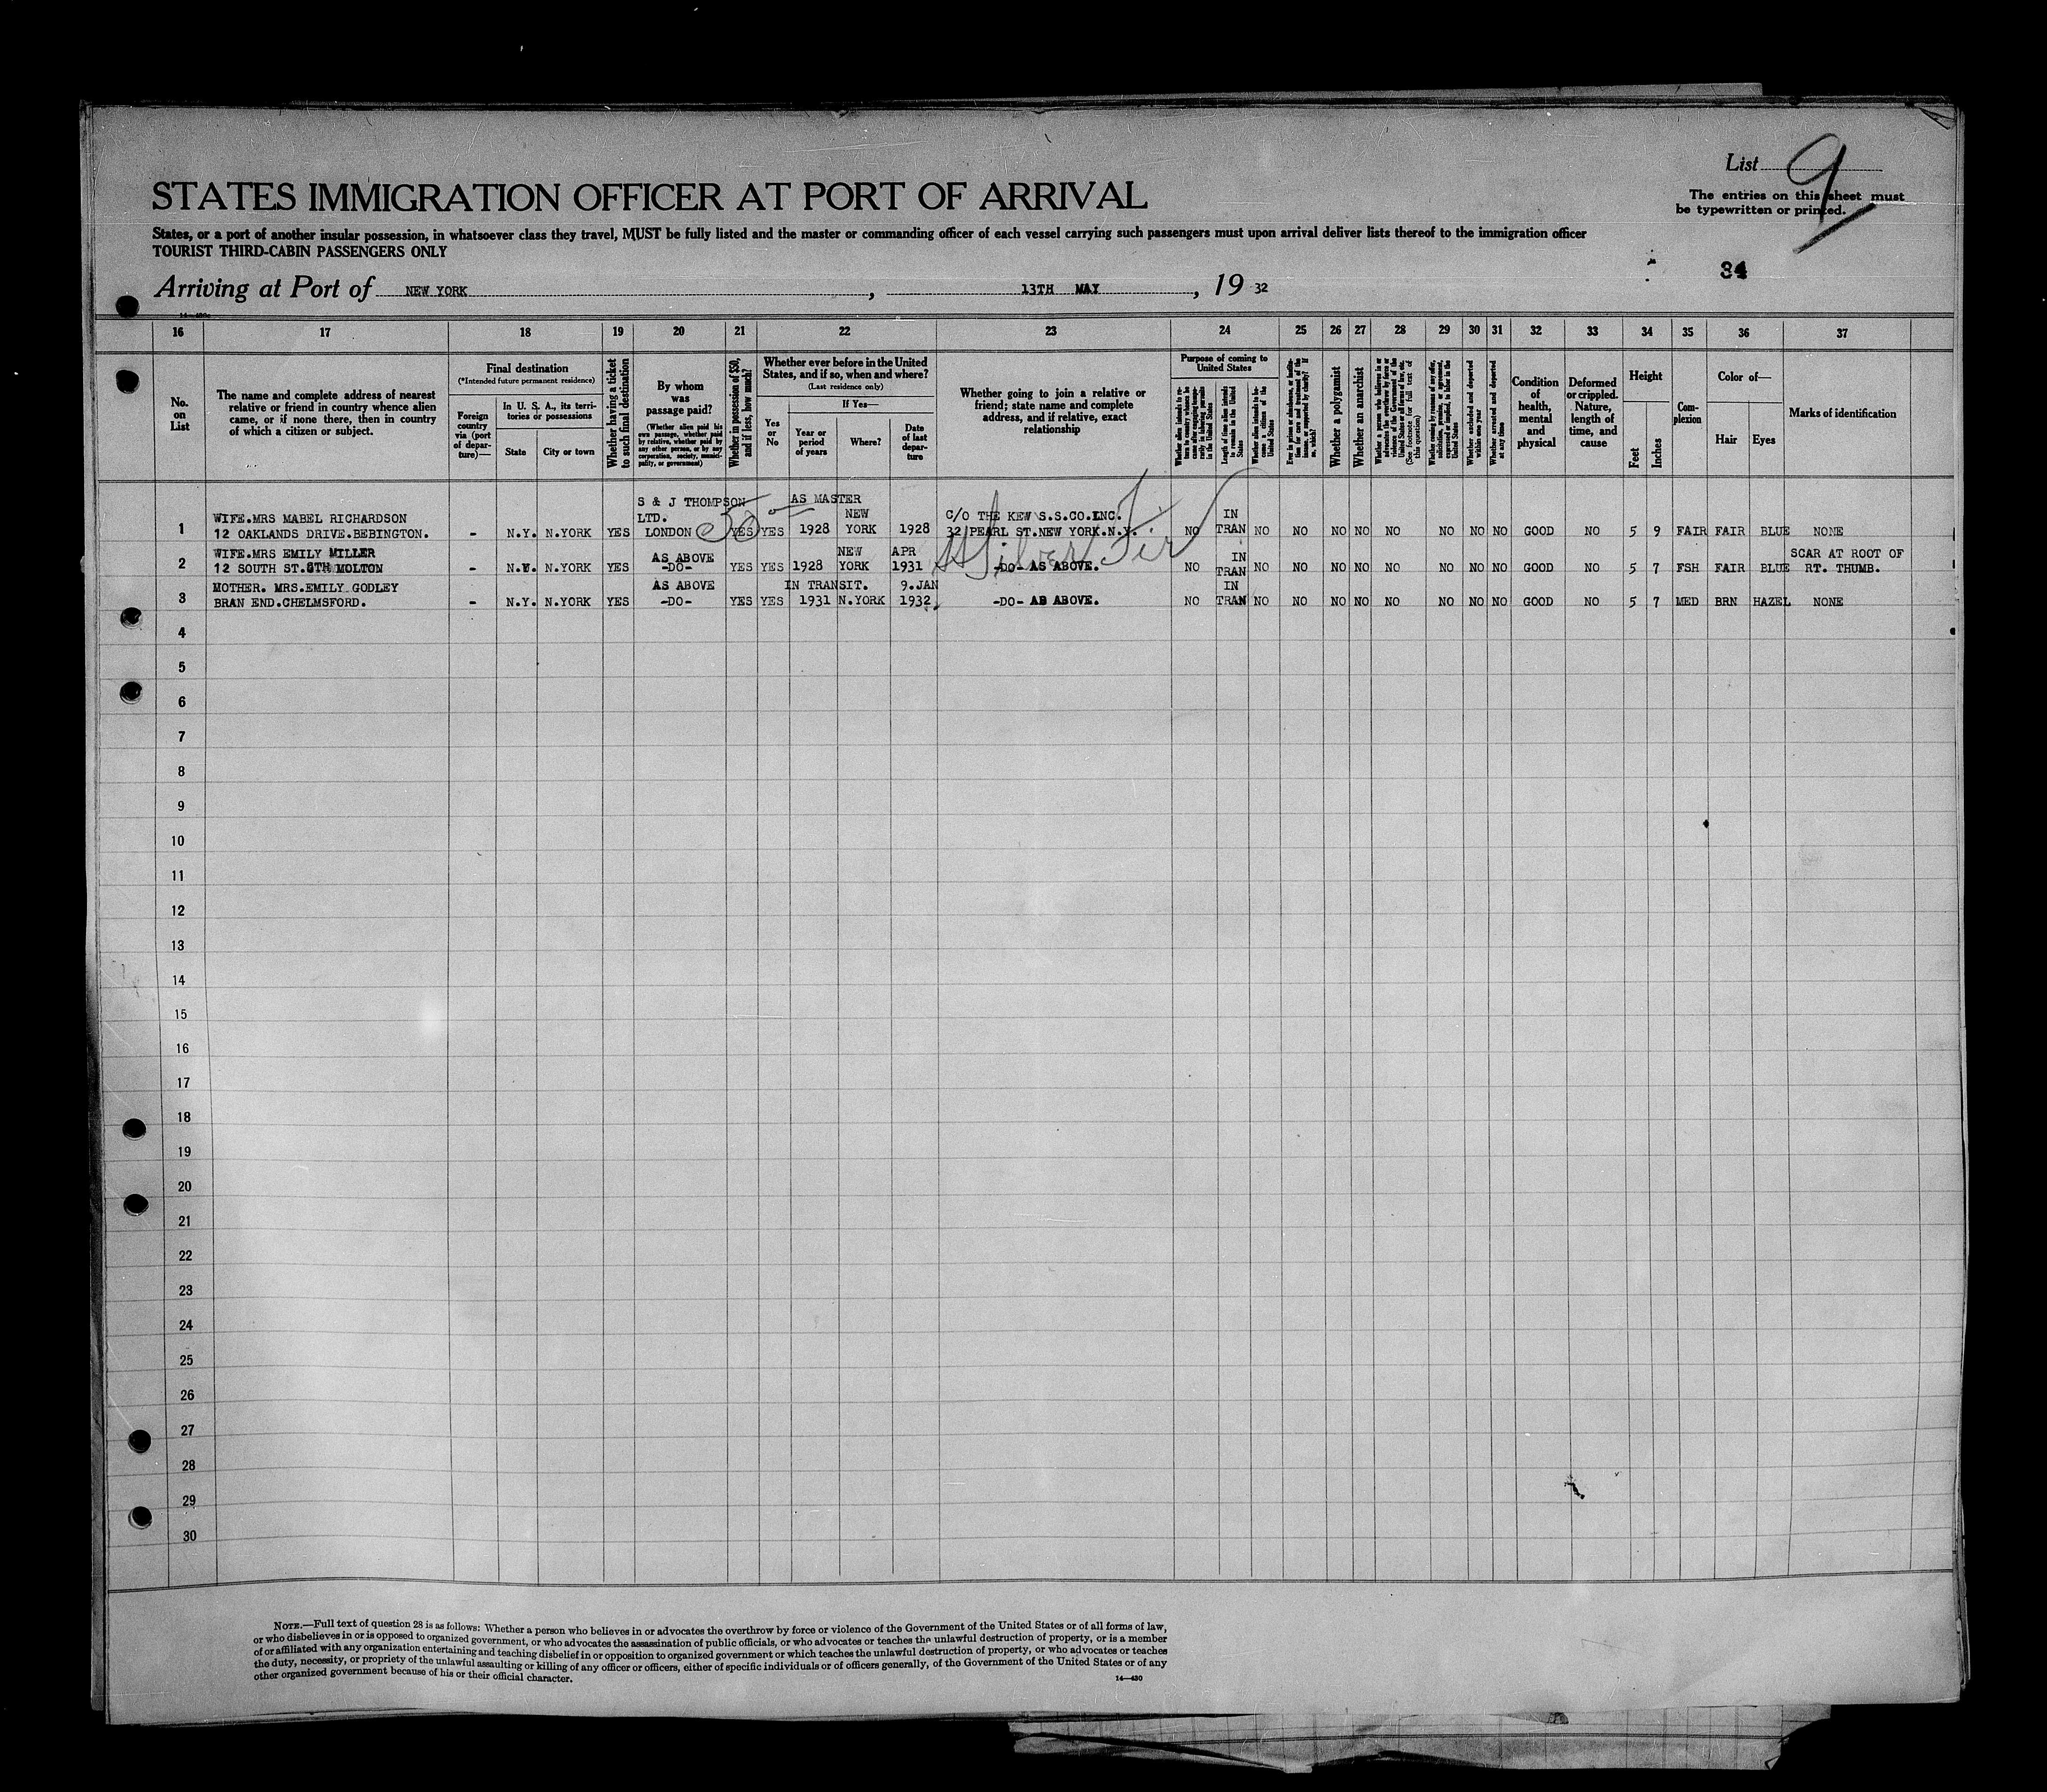 List 9
The entries on this sheet must
be typewritten or printed.
STATES IMMIGRATION OFFICER AT PORT OF ARRIVAL
States, or a port of another insular possession, in whatsoever class they travel, MUST be fully listed and the master or commanding officer of each vessel carrying such passengers must upon arrival deliver lists thereof to the immigration officer
TOURIST THIRD-CABIN PASSENGERS ONLY
34
Arriving at Port of NEW YORK, 13TH MAY, 19 32
16 17 18 19 20 21 22 23 24 25 26 27 28 29 30 31 32 33 34 35 36 37
No. on List
The name and complete address of nearest
relative or friend in country whence alien
came, or if none there, then in country
of which a citizen or subject.
Final destination
(*Intended future permanent residence)
Foreign country via (port of departure)—
In U. S. A., its territories or possessions
State
City or town
Whether having a ticket to such final destination
By whom was passage paid?
(Whether alien paid his own passage, whether paid by relative, whether paid by any other person, or by any corporation, society, municipality, or government)
Whether in possession of $50, and if less, how much?
Whether ever before in the United
States, and if so, when and where?
(Last residence only)
Yes or No
If Yes—
Year or period of years
Where?
Date of last departure
Whether going to join a relative or
friend; state name and complete
address, and if relative, exact
relationship
Purpose of coming to
United States
Length of time alien intends to remain in the United States
Whether alien intends to become a citizen of the United States
Whether a polygamist
Whether an anarchist
(See footnote for full text of this question)
Whether excluded and deported within one year
Whether arrested and deported at any time
Condition of health, mental and physical
Deformed or crippled. Nature, length of time, and cause
Height
Feet
Inches
Complexion
Color of—
Hair
Eyes
Marks of identification
S & J THOMPSON AS MASTER
WIFE.MRS MABEL RICHARDSON LTD. 50 NEW C/O THE KEW S.S.CO.INC. IN
1 12 OAKLANDS DRIVE.BEBINGTON. - N.Y. N.YORK YES LONDON YES YES 1928 YORK 1928 32 PEARL ST.NEW YORK.N.Y. NO TRAN NO NO NO NO NO NO NO NO GOOD NO 5 9 FAIR FAIR BLUE NONE
Silver Fir
WIFE.MRS EMILY MILLER AS ABOVE NEW APR IN SCAR AT ROOT OF
2 12 SOUTH ST.STH MOLTON - N.Y. N.YORK YES -DO- YES YES 1928 YORK 1931 -DO- AS ABOVE. NO TRAN NO NO NO NO NO NO NO NO GOOD NO 5 7 FSH FAIR BLUE RT. THUMB.
MOTHER. MRS.EMILY GODLEY AS ABOVE IN TRANSIT. 9.JAN IN
3 BRAN END.CHELMSFORD. - N.Y. N.YORK YES -DO- YES YES 1931 N.YORK 1932 -DO- AB ABOVE. NO TRAN NO NO NO NO NO NO NO NO GOOD NO 5 7 MED BRN HAZEL NONE
4
5
6
7
8
9
10
11
12
13
14
15
16
17
18
19
20
21
22
23
24
25
26
27
28
29
30
NOTE.—Full text of question 28 is as follows: Whether a person who believes in or advocates the overthrow by force or violence of the Government of the United States or of all forms of law,
or who disbelieves in or is opposed to organized government, or who advocates the assassination of public officials, or who advocates or teaches the unlawful destruction of property, or is a member
of or affiliated with any organization entertaining and teaching disbelief in or opposition to organized government or which teaches the unlawful destruction of property, or who advocates or teaches
the duty, necessity, or propriety of the unlawful assaulting or killing of any officer or officers, either of specific individuals or of officers generally, of the Government of the United States or of any
other organized government because of his or their official character.
14—430